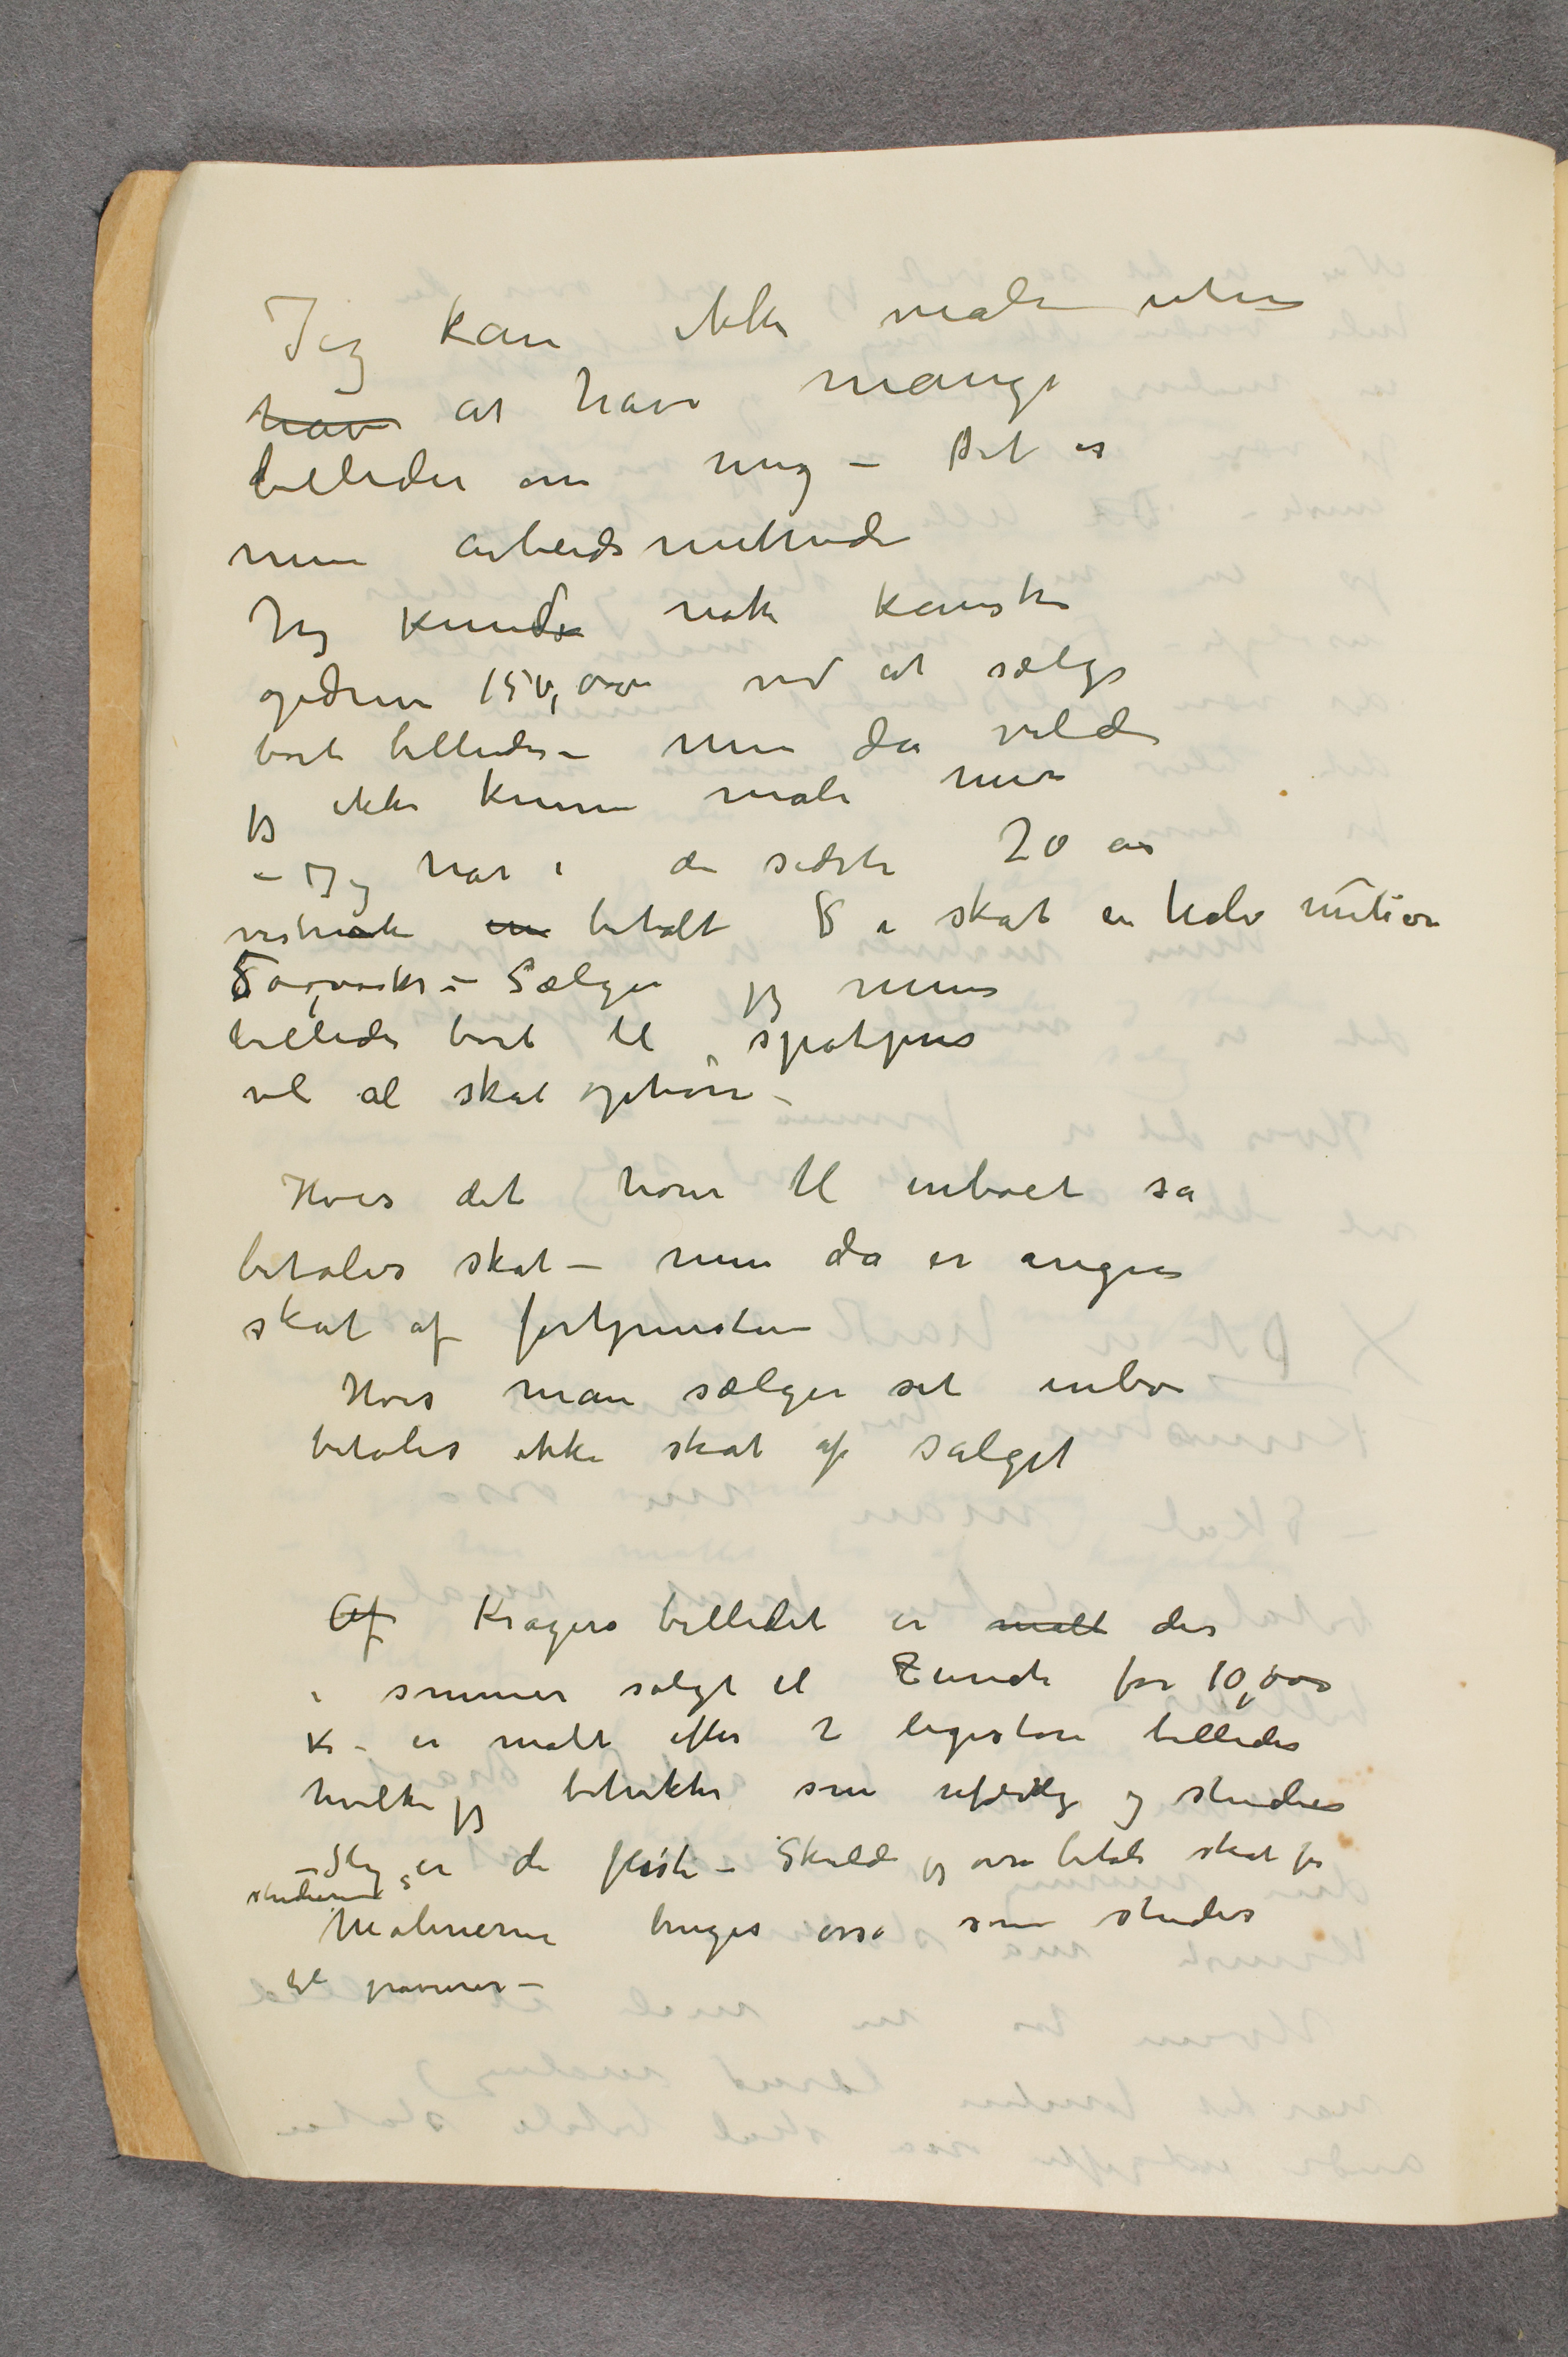 Jeg kan ikke male uten
have at have mange
billeder om mig – Det er
min arbeidsmethode
Jeg kunde nok kanske
opdrive 150,000 ved at sælge
bort billeder – men da vilde
jeg ikke kunne male mer
– Jeg har i de sidste 20 år
vistnok en betalt i skat en halv million
500,000 kr – Sælger jeg mine
billeder bort til spotpris
vil al skat ophøre –
Hvis det hører til inboet så
betales skat – men da er ingen
skat af fortjenesten
Hvis man sælger sit inbo
betales ikke skat af salget
Af Kragerø billedet er malt der
i sommer solgt til Zunde for 10,000
Kr – er malt efter 2 ligestore billeder
hvilke jeg betrakter som uferdig og studier
– Slig er de fleste – Skulde jeg osså betale skat for
studierne
Malerierne bruges osså som studier
til gravurer –